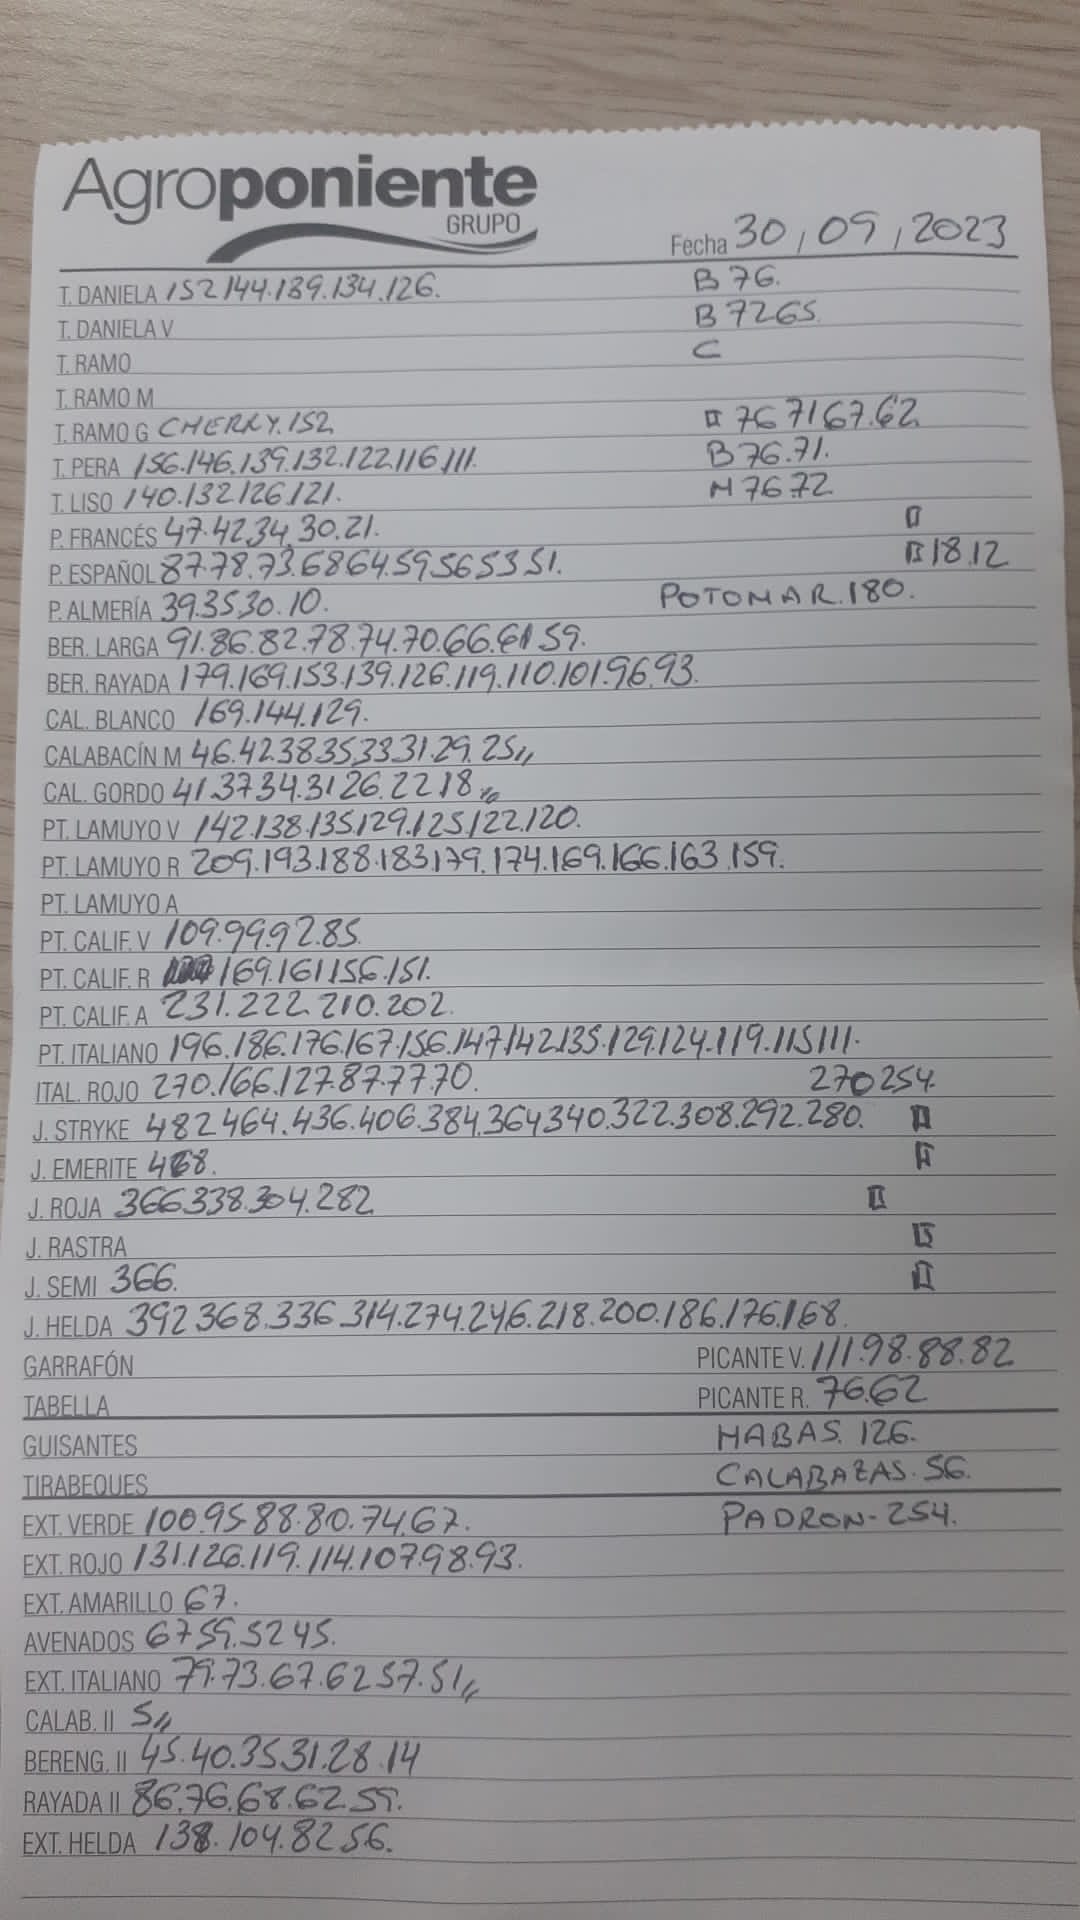 Agroponiente
GRUPO
Fecha 30, 09, 2023
T. DANIELA 152.144.139.134.126. B 76.
T. DANELA V B 72 65.
T. RAMO C
T. RAMO M
T. RAMO G CHERRY.152 76 71 67.62
T. PERA 156.146.139.132.122.116.111. B 76.71.
T. LISO 140.132.126.121. M 76.72
P. FRANCÉS 47.42.34.30.21.
P. ESPAÑOL 87.78.73.68 64.59.56 53 51. B 18.12
P. ALMERÍA 39.35.30.10. POTOMAR.180.
BER. LARGA 91.86.82.78.74.70.66.61 59.
BER. RAYADA 179.169.153.139.126.119.110.101.96.93.
CAL. BLANCO 169.144.129.
CALABACÍN M 46.42.38 35 33 31.29.25,,
CAL. GORDO 41.37 34.31 26.22 18,,
PT. LAMUYO V 142.138.135.129.125.122.120.
PT. LAMUYO R 209.193.188.183.179.174.169.166.163.159.
PT. LAMUYO A
PT. CALIF. V 109.99.92.85.
PT. CALIF. R 169.161 156.151.
PT. CALIF. A 231.222.210.202.
PT. ITALIANO 196.186.176.167.156.147.142.135.129.124.119.115 111.
ITAL. ROJO 270.166.127.87.77.70. 270 254.
J. STRYKE 482 464.436.406.384.364 340.322.308.292.280.
J. EMERITE 468.
J. ROJA 366.338.304.282
J. RASTRA
J. SEMI 366.
J. HELDA 392 368.336.314.274.246.218.200.186.176.168.
GARRAFÓN PICANTE V. 111.98.88.82
TABELLA PICANTE R. 76.62
GUISANTES HABAS. 126.
TIRABEQUES CALABAZAS. 56.
EXT. VERDE 100.95 88.80.74.67. PADRON-254.
EXT. ROJO 131.126.119.114.107.98.93.
EXT. AMARILLO 67.
AVENADOS 67 59.52 45.
EXT. ITALIANO 79.73.67.62 57.51,,
CALAB. II 5,,
BERENG. II 45.40.35 31.28.14
RAYADA II 86.76.68.62 59.
EXT. HELDA 138.104.82 56.